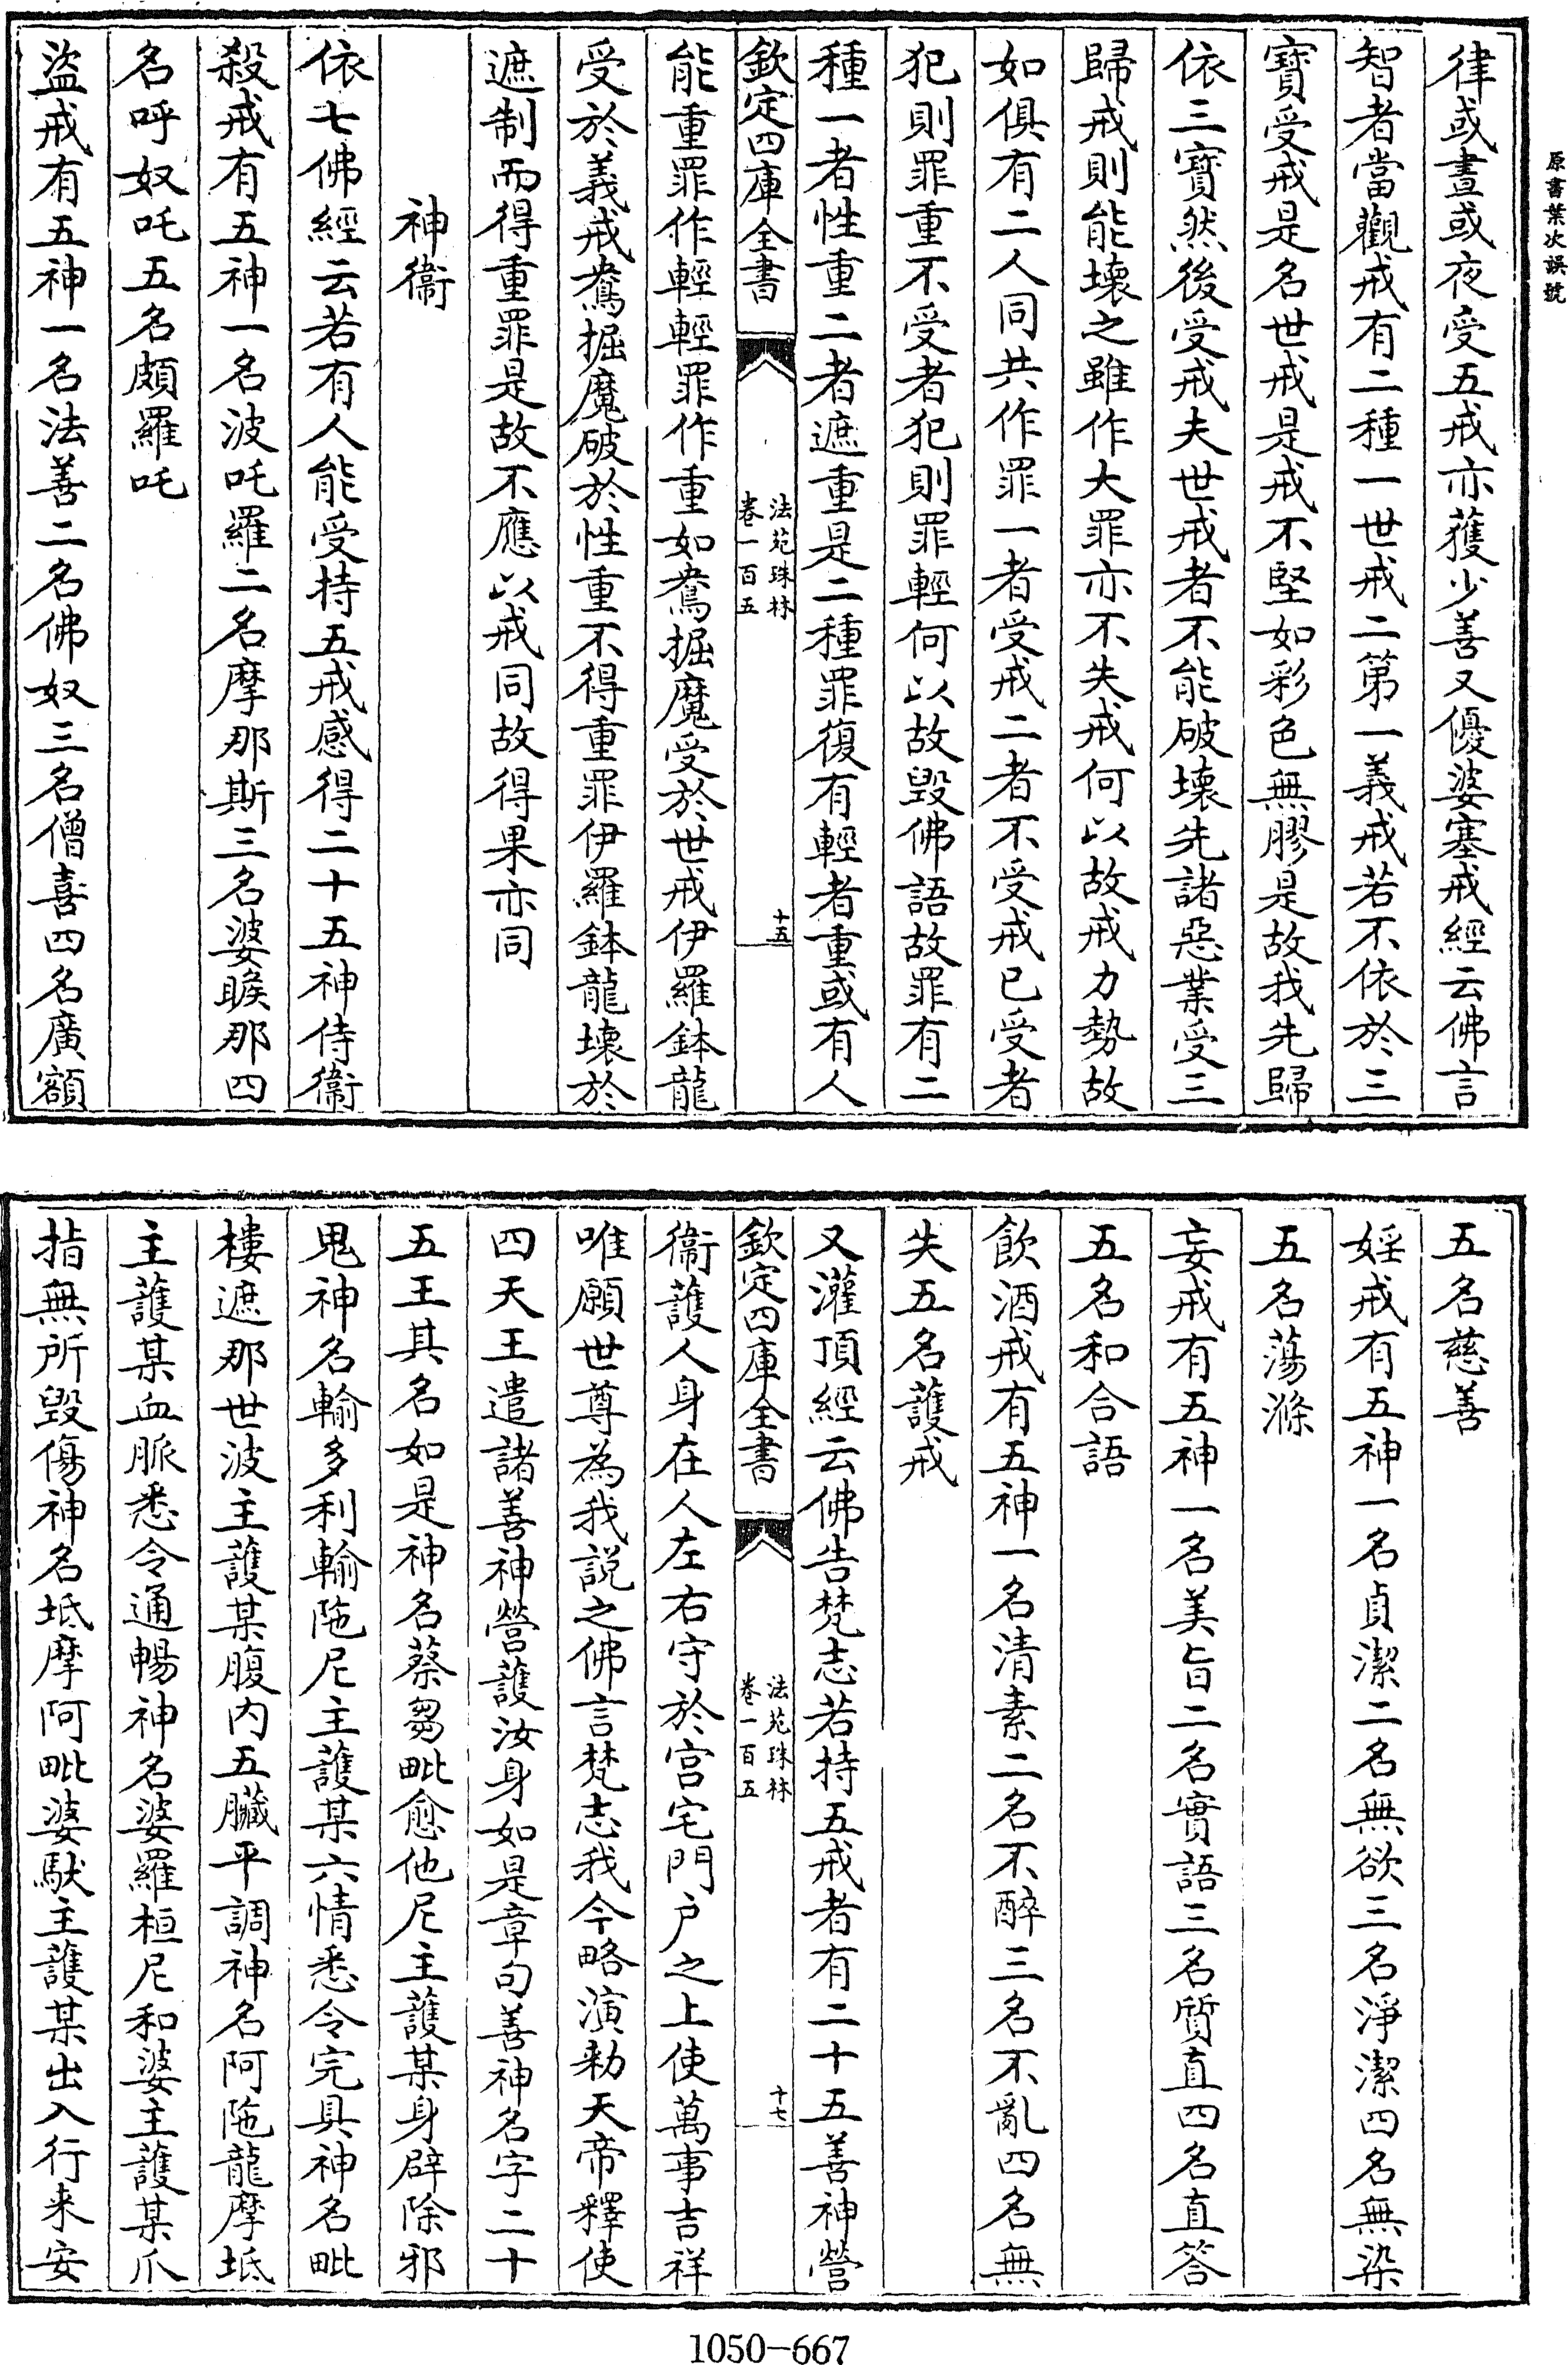 原書葉次誤號
律或晝或夜受五戒亦獲少善又優婆塞戒經云佛言
智者當觀戒有二種一世戒二第一義戒若不依於三
寶受戒是名世戒是戒不堅如彩色無膠是故我先歸
依三寶然後受戒夫世戒者不能破壞先諸惡業受三
歸戒則能壞之雖作大罪亦不失戒何以故戒力勢故
如俱有二人同共作罪一者受戒二者不受戒已受者
犯則罪重不受者犯則罪輕何以故毀佛語故罪有二
種一者性重二者遮重是二種罪復有輕者重或有人
欽定四庫全書
法苑珠林
卷一百五
十五
能重罪作輕輕罪作重如鴦掘魔受於世戒伊羅鉢龍
受於義戒鴦掘魔破於性重不得重罪伊羅鉢龍壞於
遮制而得重罪是故不應以戒同故得果亦同
神衞
依七佛經云若有人能受持五戒感得二十五神侍衞
殺戒有五神一名波吒羅二名摩那斯三名婆睺那四
名呼奴吒五名頗羅吒
盜戒有五神一名法善二名佛奴三名僧喜四名廣額
五名慈善
婬戒有五神一名貞潔二名無欲三名淨潔四名無染
五名蕩滌
妄戒有五神一名美旨二名實語三名質直四名直答
五名和合語
飲酒戒有五神一名清素二名不醉三名不亂四名無
失五名護戒
又灌頂經云佛告梵志若持五戒者有二十五善神營
欽定四庫全書
法苑珠林
卷一百五
十七
衞護人身在人左右守於宮宅門户之上使萬事吉祥
唯願世尊為我說之佛言梵志我今略演勑天帝釋使
四天王遣諸善神營護汝身如是章句善神名字二十
五王其名如是神名蔡芻毗愈他尼主護某身辟除邪
鬼神名輸多利輸陁尼主護某六情悉令完具神名毗
樓遮那世波主護某腹内五臟平調神名阿陁龍摩坻
主護某血脈悉令通暢神名婆羅桓尼和婆主護某爪
指無所毀傷神名坻摩阿毗婆馱主護某出入行来安
1050-667